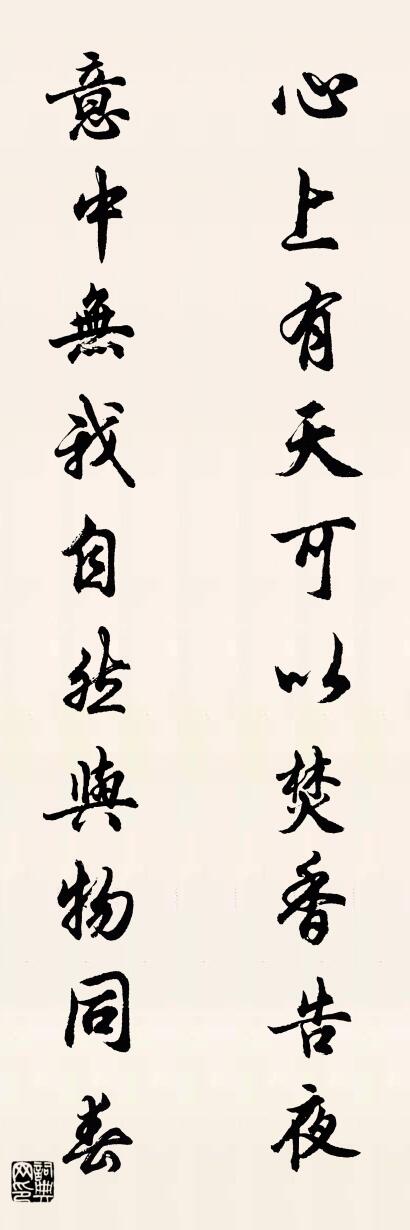 心上有天可以焚香告夜
意中無我自然與物同春
詞典網印